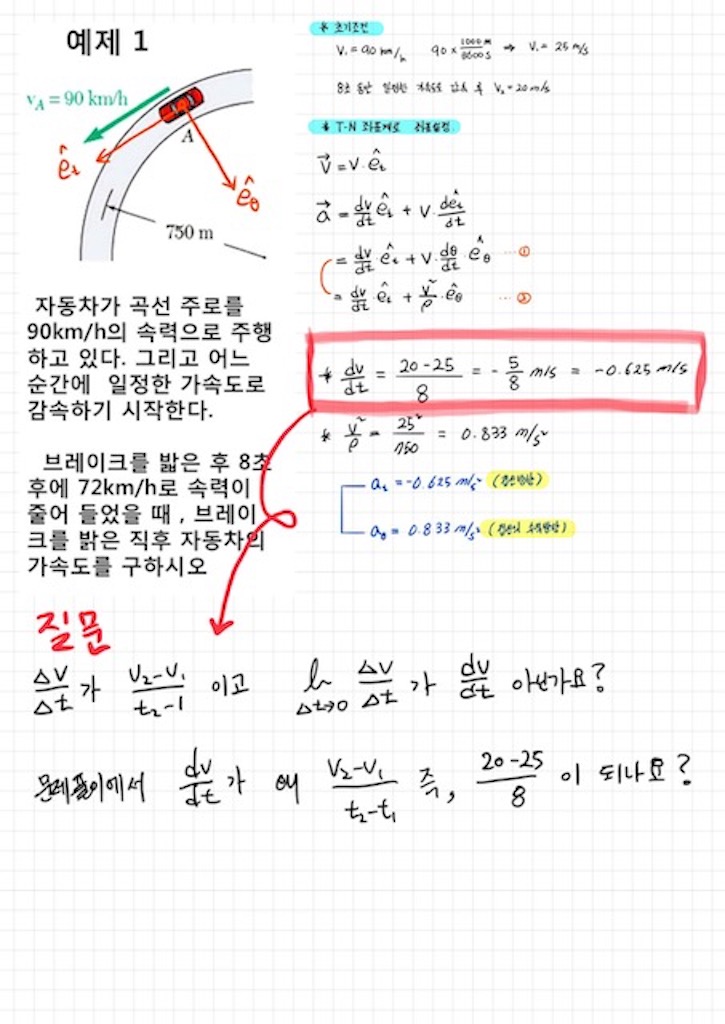 예제 1
v_A = 90 km/h
A
ê_t
ê_θ
750 m
자동차가 곡선 주로를
90km/h의 속력으로 주행
하고 있다. 그리고 어느
순간에 일정한 가속도로
감속하기 시작한다.
브레이크를 밟은 후 8초
후에 72km/h로 속력이
줄어 들었을 때 , 브레이
크를 밝은 직후 자동차의
가속도를 구하시오
* 초기조건
V₁ = 90 km/h 90 × 1000M/3600S ⇒ V₁ = 25 m/s
8초 동안 일정한 가속도로 감속 후 V₂ = 20 m/s
* T-N 좌표계로 좌표설정
V⃗ = V·ê_t
a⃗ = dv/dt ê_t + V·dê_t/dt
= dv/dt·ê_t + V·dθ/dt·ê_θ ····①
= dv/dt·ê_t + V²/ρ·ê_θ ····②
* dv/dt = 20-25/8 = -5/8 m/s = -0.625 m/s
* V²/ρ = 25²/750 = 0.833 m/s²
a_t = -0.625 m/s² (접선방향)
a_θ = 0.833 m/s²
질문
ΔV/Δt 가 V₂-V₁/t₂-1 이고 lim Δt→0 ΔV/Δt 가 dv/dt 아닌가요?
문제풀이에서 dv/dt 가 왜 V₂-V₁/t₂-t₁ 즉, 20-25/8 이 되나요?